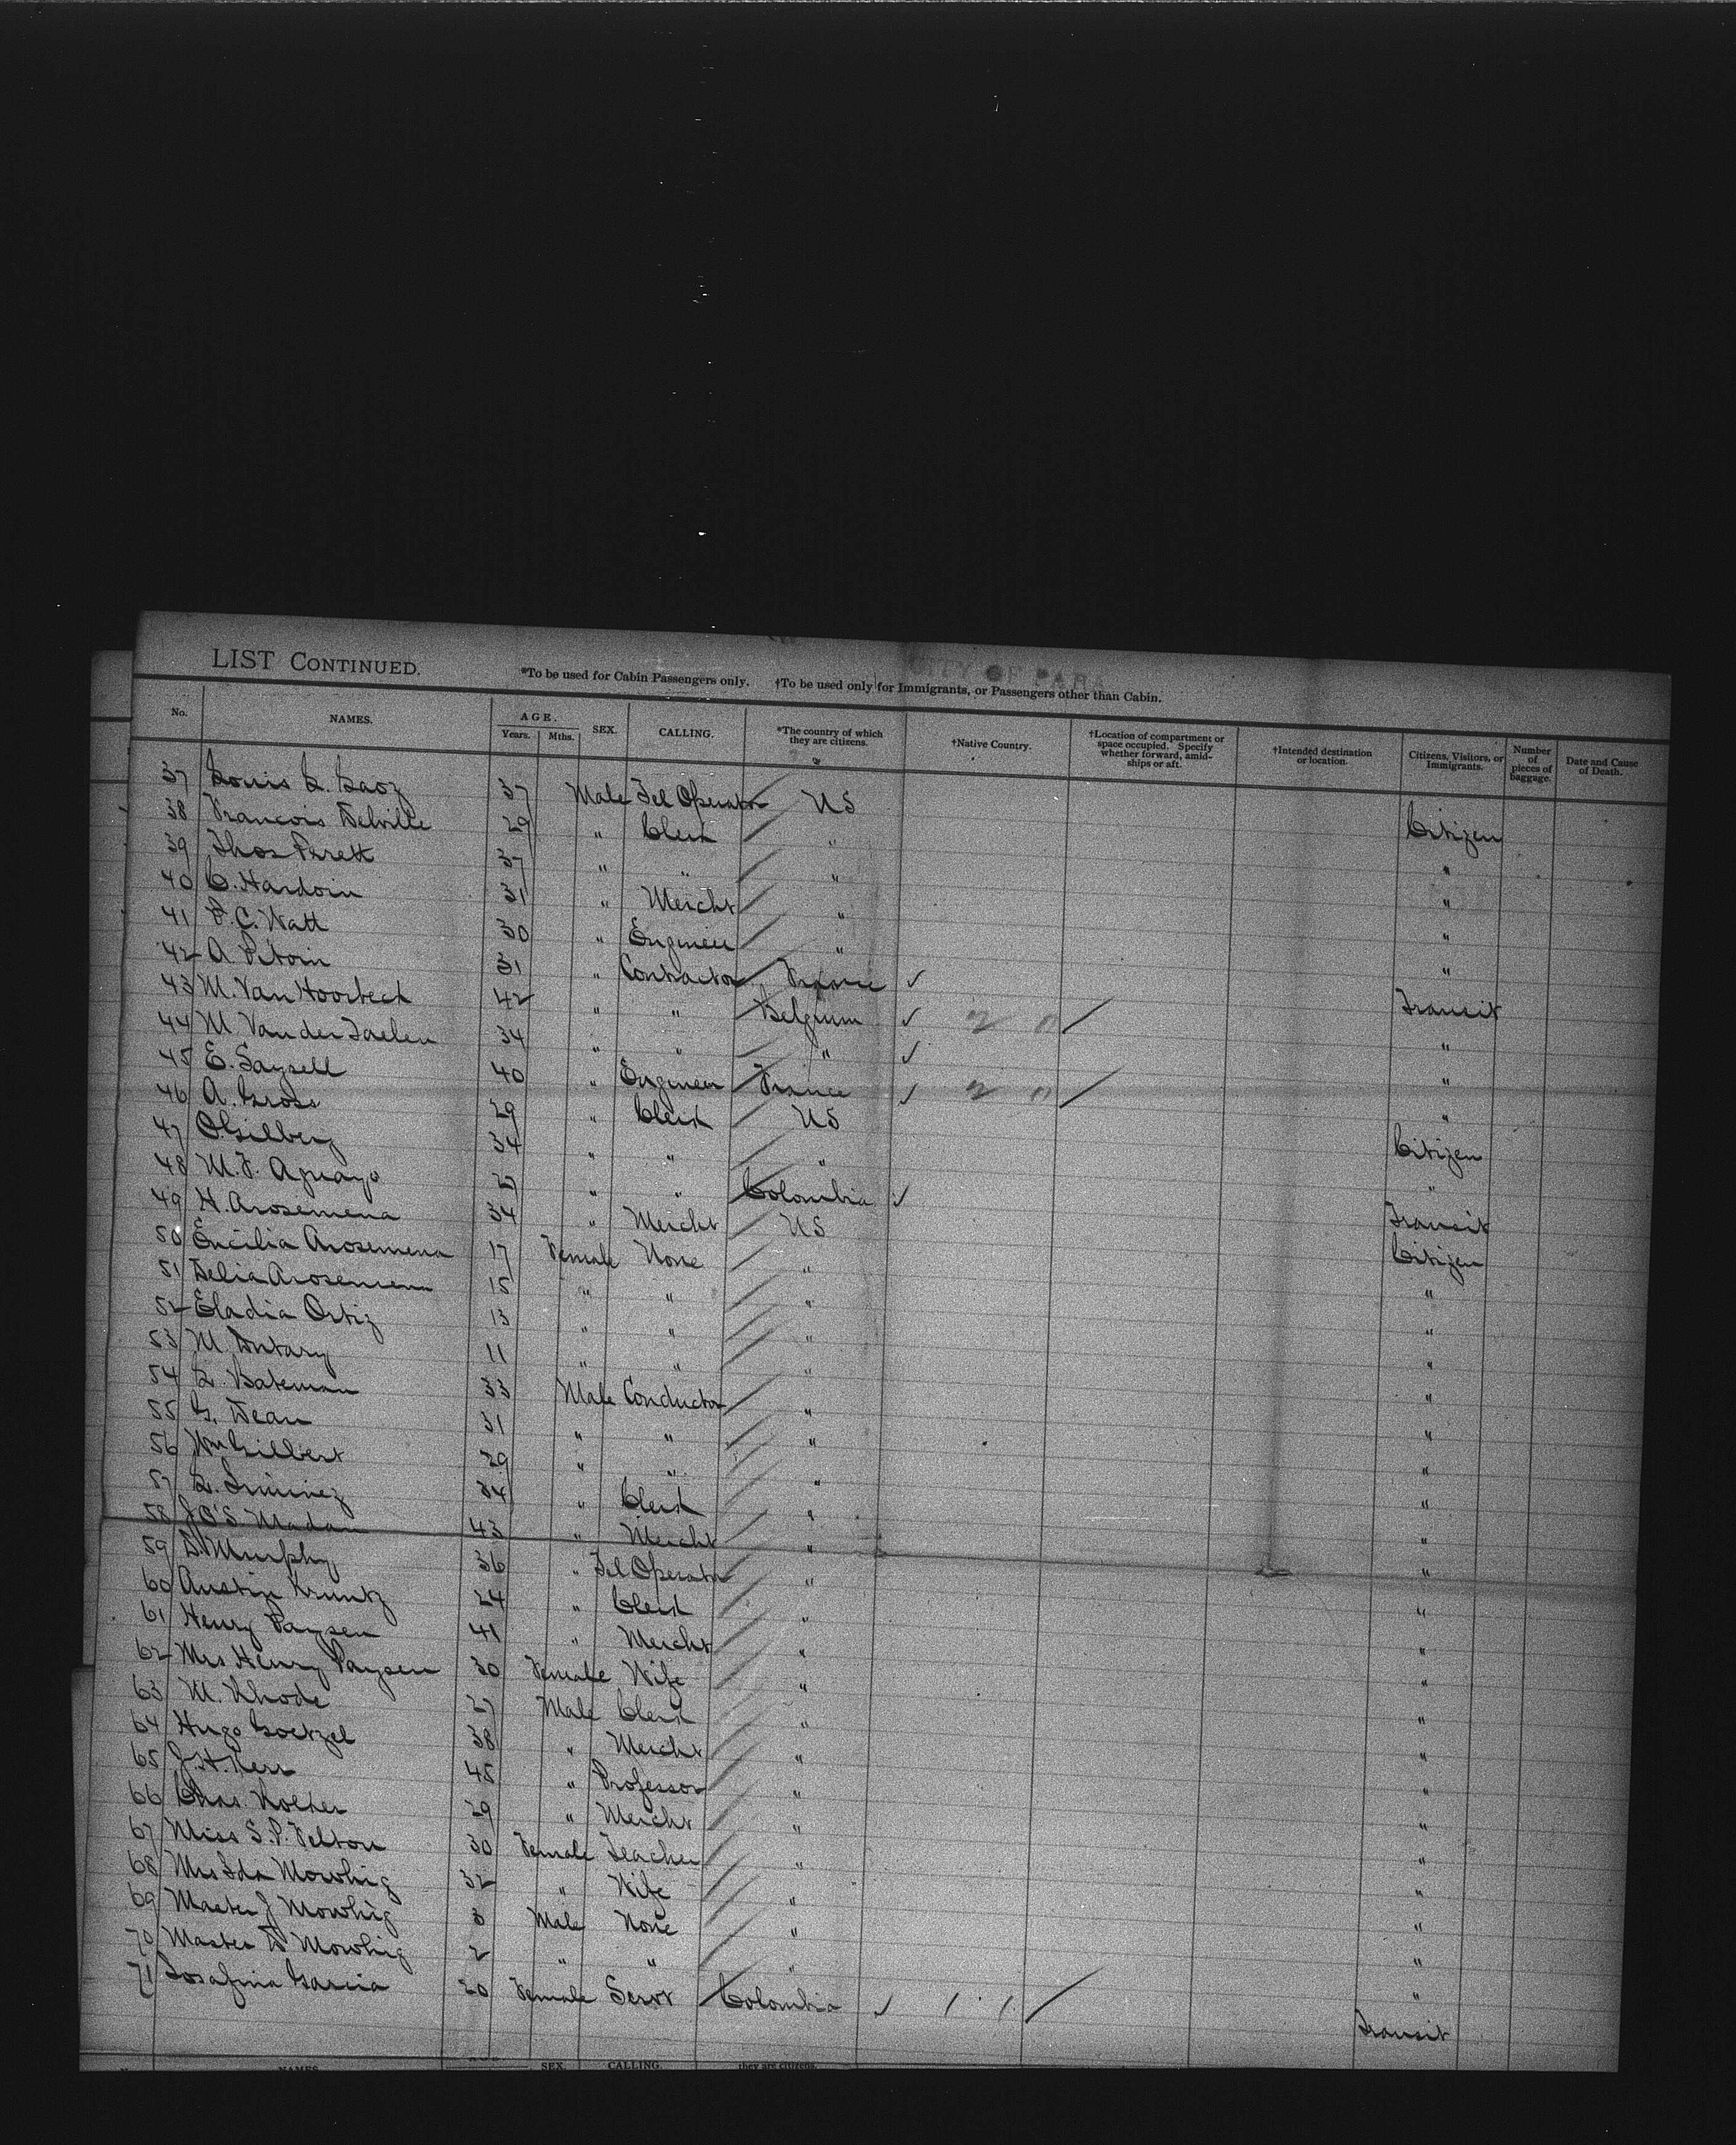 LIST CONTINUED.
CITY OF PARA
*To be used for Cabin Passengers only. †To be used only for Immigrants, or Passengers other than Cabin.
No. NAMES. AGE. Years. Mths. SEX. CALLING. *The country of which they are citizens. †Native Country. †Location of compartment or space occupied. Specify whether forward, amidships or aft. †Intended destination or location. Citizens, Visitors, or Immigrants. Number of pieces of baggage. Date and Cause of Death.
37 Louis 37 Male Tel Operator US Citizen
38 Francois Delville 29 " Clerk " "
39 Thos Perett 37 " " " "
40 C. Hardoin 31 " Mercht " "
41 F. C. Watt 30 " Engineer " "
42 A Petoin 31 " Contractor France ✓ Transit
43 M. Van Hoorbeck 42 " " Belgium ✓ "
44 M. Van der Taelen 34 " " " ✓ "
45 E. Saysell 40 " Engineer France ✓ "
46 A. Gross 29 " Clerk US Citizen
47 Gilberg 34 " " " "
48 M. F. Aguayo 27 " " Colombia ✓ Transit
49 H. Arosemena 34 " Mercht US Citizen
50 Encilia Arosemena 17 Female None " "
51 Delia Arosemena 15 " " " "
52 Eladia Ortiz 13 " " " "
53 M. Dutary 11 " " " "
54 L. Bateman 33 Male Conductor " "
55 G. Dean 31 " " " "
56 Wm Gilbert 29 " " " "
57 L. Jiminez 34 " Clerk " "
58 J O'S Madan 43 " Mercht " "
59 D. Murphy 36 " Tel Operator " "
60 Austin Kruntz 24 " Clerk " "
61 Henry Paysen 41 " Mercht " "
62 Mrs Henry Paysen 30 Female Wife " "
63 M. Rhode 27 Male Clerk " "
64 Hugo Goetzel 38 " Mercht " "
65 J. H. Kerr 45 " Professor " "
66 Chas. Kolher 29 " Mercht " "
67 Miss S. P. Felton 30 Female Teacher " "
68 Mrs Ida Mowhig 32 " Wife " "
69 Master J Mowhig 3 Male None " "
70 Master D Mowhig 2 " " " "
71 Josafina Garcia 20 Female Servt Colombia ✓ 1 1 Transit
NAMES. SEX. CALLING. they are citizens.